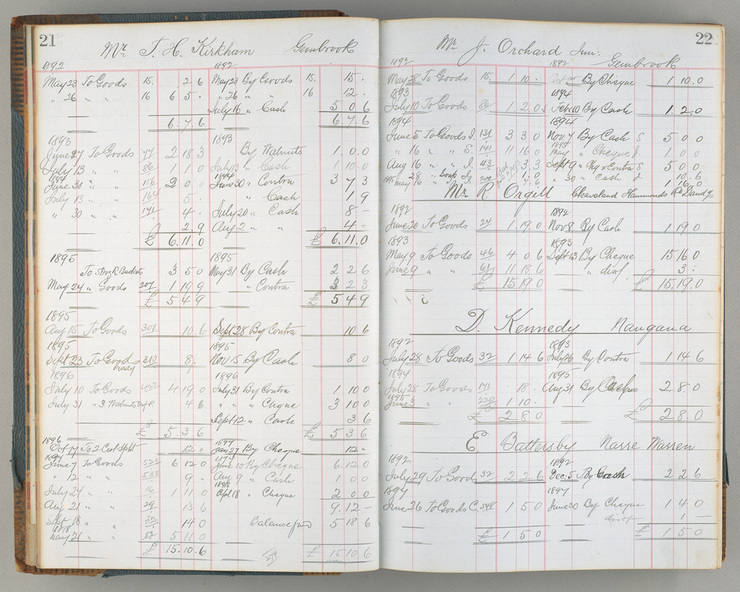 21
Mr. T. H. Kirkham Gembrook
1892 1892
May 23 To Goods 15 2 6 May 23 By Goods 15 15 -
" 26 " " 16 6 5 - " 26 " " 16 12 -
July 16 " Cash 5 0 6
6 7 6 6 7 6
1893 1893
June 27 To Goods 77 2 18 3 By Walnuts 1 0 0
July 13 " " 86 1 1 0 July " Cash 1 1 0 0
1894 1894
June 21 " " 156 2 0 0 June 30 " Contra 3 7 3
July 13 " " 164 5 - " Cash 1 9
" 30 " " 171 4 - July 20 " Cash 8 -
2 9 Aug 2 " " 4 -
£ 6.11.0 £ 6.11.0
1895 1895
To 3 5 0 May 31 By Cash 2 2 6
May 24 " Goods 287 1 19 9 " Contra 3 2 3
£ 5 4 9 5 4 9
1895
Aug 15 To Goods 301 10 6 Sept 28 By Contra 10 6
1895 1895
Sept 23 To Goods 8 - Nov 15 By Cash 8 0
1896 1896
July 10 To Goods 4 19 0 July 31 By Contra 1 10 0
July 31 " 3 4 6 " " Cheque 3 10 0
Sept 12 " Cash 3 6
£ 5 3 6 £ 5 3 6
1896 1897
Oct 17 To 2 12 0 Jan 27 By Cheque 12 -
1897
June 7 To Goods 6 12 0 June 10 By Cheque 6.12.0
" 12 " " 9 - Aug 9 " Cash 1 0 0
1898
July 24 " " 1 11 0 Sept 18 " Cheque 2 0 0
Aug 21 " " 13 6 9.12 -
Sept 18 " " 14 0 Balance fwd 5 18 6
1898
May 21 " " 5 11 0
£ 15.10.6 £ 15 10 6
22
Mr. J. Orchard Junr. Gembrook
1892 1892
May 28 To Goods 15 1 10 - By Cheque 1 10.0
1893 1894
July 10 To Goods 86 1 2 0 Feb 10 By Cash 1 2 0
1894 1894
June 5 To Goods S. 151 3 3 0 Nov 7 By Cash S 5 0 0
" 16 " " S. 1 16 0 " Cheque J 1 0 0
Aug 16 " " J. 3 3 Sept 9 " Contra S 5 0 0
May 16 1. 0 " 30 " Cash d 10.6
Mr. R. Orgill Cleaveland Hammonds Rd Dand'g.
1892 1892
June 20 To Goods 24 1 19 0 Nov 8 By Cash 1 19 0
1893 1893
May 9 To Goods 46 4 0 6 Sept 13 By Cheque 15 16 0
June 9 " " 67 11 18 6 " disct. 3 -
£ 15 19 0 £ 15,19 0
D. Kennedy Nangana
1892 1893
July 28 To Goods 32 1 14 6 July 6 By Contra 1 14 6
1894
July 28 To Goods 171 18 - Aug 31 By Cheque 2 8 0
1895
June 3 " " 1 10 -
£ 2 8 0 £ 2 8.0
E Battersby Narre Warren
1892 1892
July 29 To Goods 32 2 2 6 Dec 5 By Cash 2 2 6
1897 1897
June 26 To Goods C. 1 5 0 June 30 By Cheque 1 4 0
disct 1 -
£ 1 5 0 £ 1 5 0